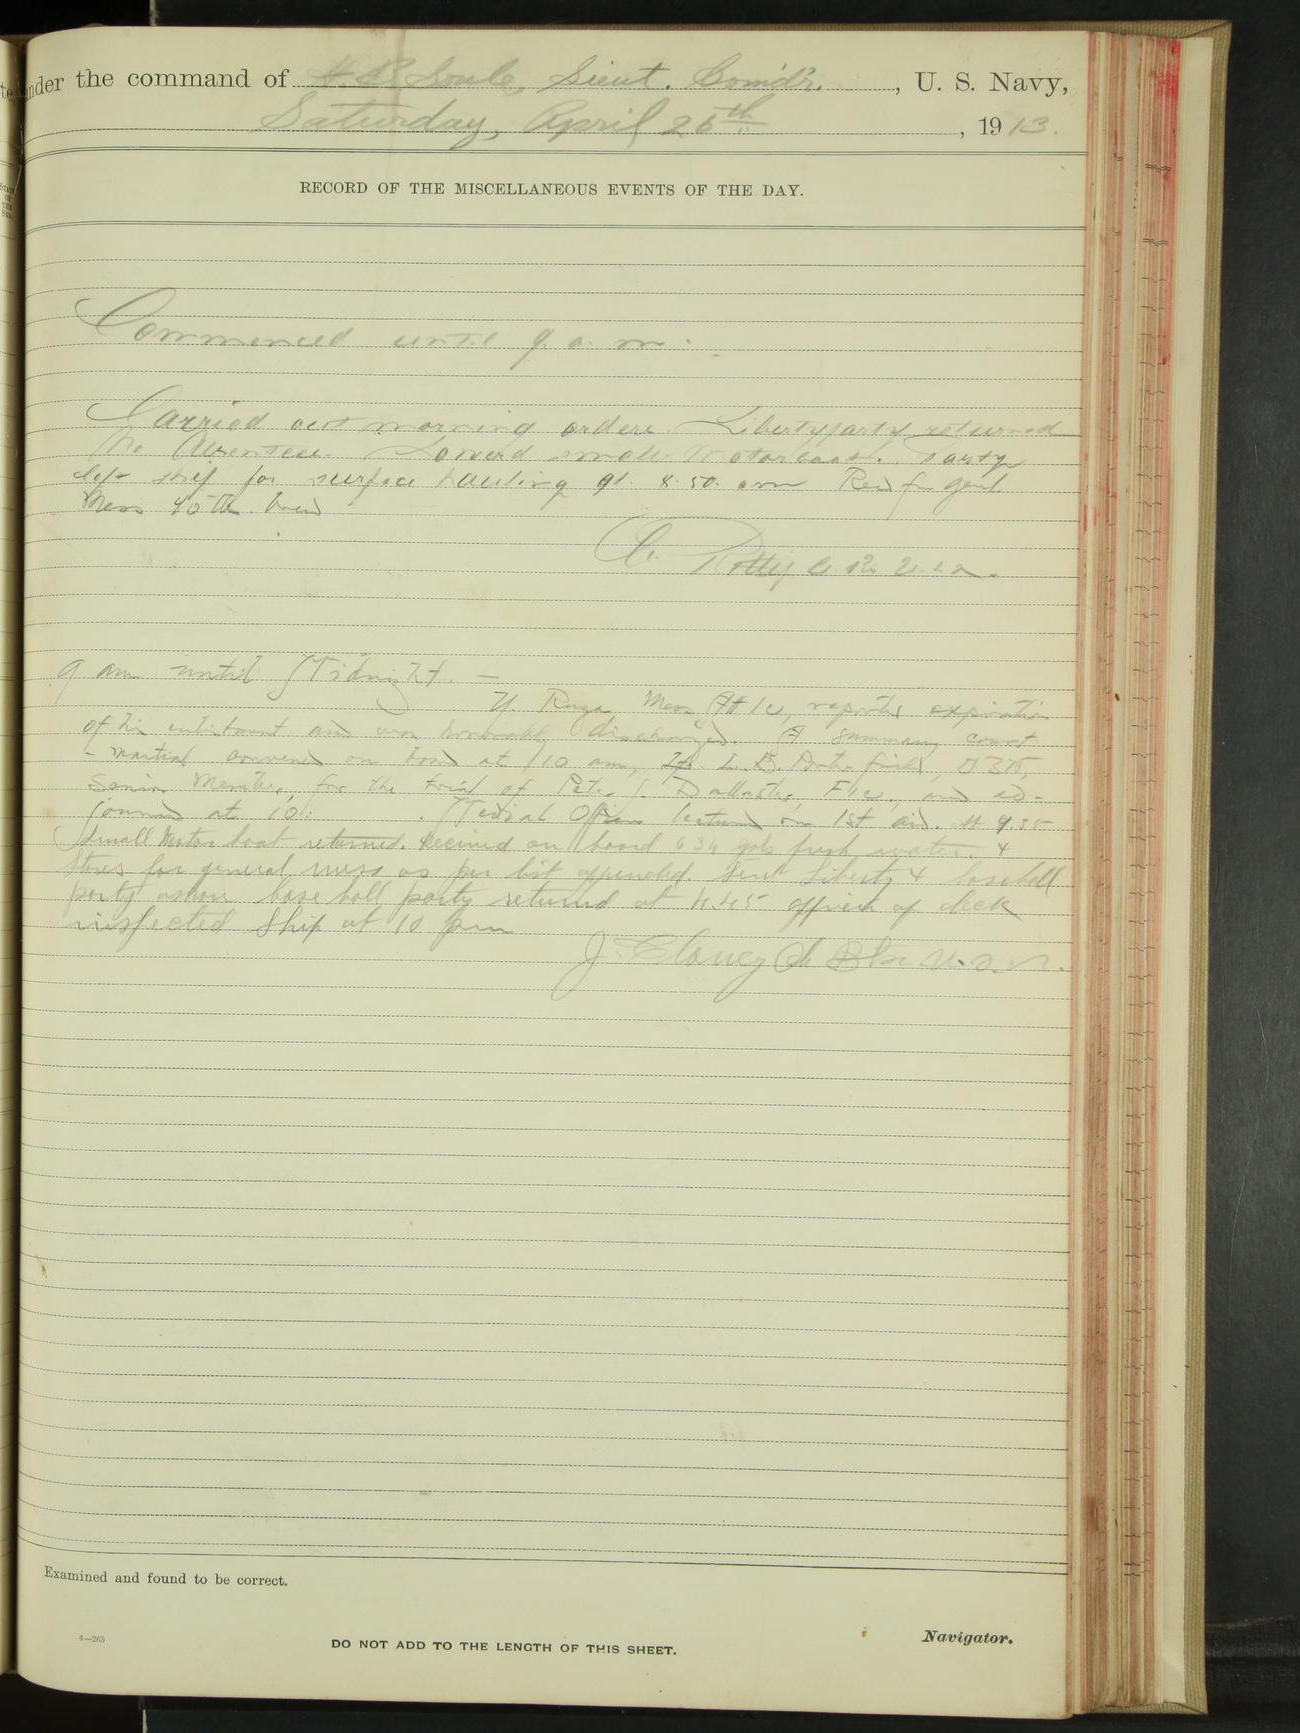 under the command of H. B. Soule, Lieut. Comdr., U. S. Navy,
Saturday, April 26th, 1913.
RECORD OF THE MISCELLANEOUS EVENTS OF THE DAY.
Commenced until 9 a. m.
Carried out morning orders. Liberty party returned
No Absentees. Lowered small Motorboat. party
left ship for surface hauling at 8.50. am Recd for Genl
Mess 40 lbs. bread
9 am until Midnight. —
Mess Att 1c, reports expiration
of his enlistment and was honorably discharged. A summary court
- martial convened on board at 10 am,
Senior Member, for the trial of Peter F1c., and ad-
journed at 10: . Medical Officer lectured on 1st aid. At 9.35
small Motor boat returned. Received on board 634 gals fresh water. &
stores for general mess as per list appended. Sent Liberty & baseball
party ashore base ball party returned at 4.45 officer of deck
inspected Ship at 10 pm
J. Clancy Ch B U.S.N.
Examined and found to be correct.
4—265
DO NOT ADD TO THE LENGTH OF THIS SHEET.
Navigator.